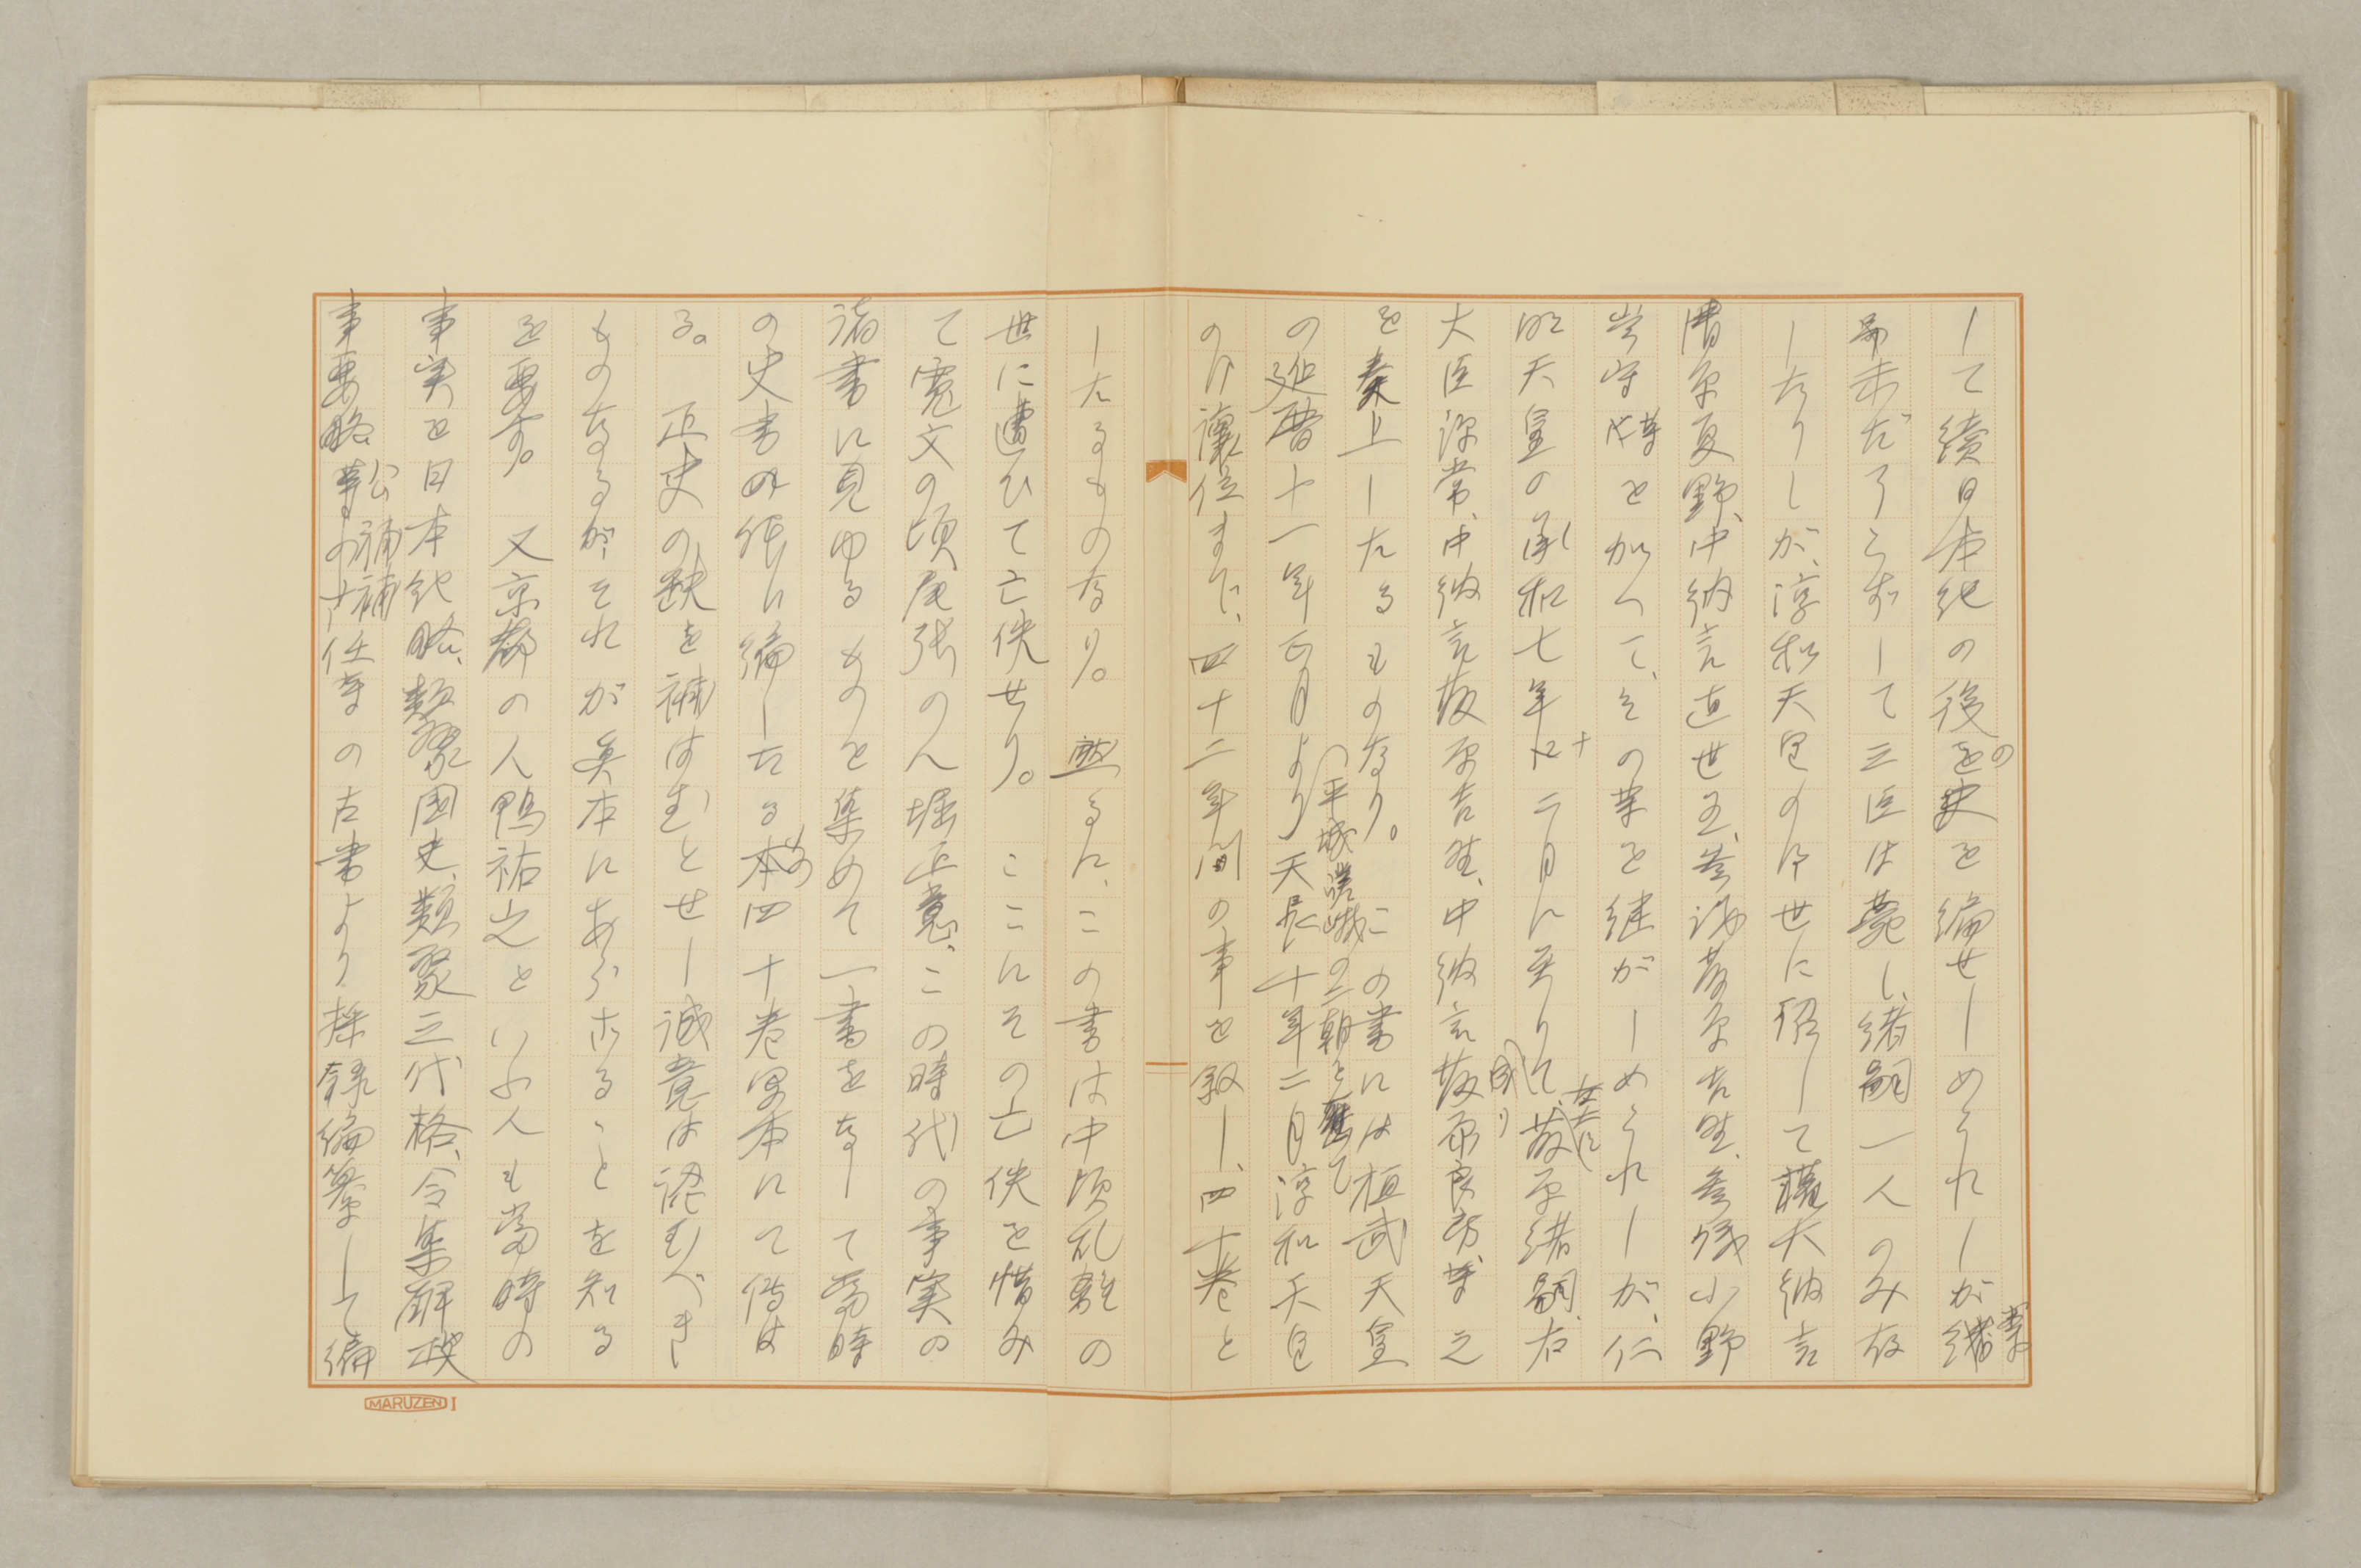 して続日本紀の後の史を編せしめられしが纂
帚未だ了らずして三臣は薨し、緒嗣一人のみ存
したりしが、淳和天皇の御世に紹して藤大納言
清原夏野、中納言直世王、参議藤原吉野、参議小野
岑守等を加へて、その業を継がしめられしが、仁
明天皇の承和七年十二月に至りて成り、藤原緒嗣、右
大臣源常、中納言藤原吉野、中納言藤原良房等之
を奏上したるものなり。この書には桓武天皇
(平城嵯峨の二朝を経て
の延暦十一年正月より天長十年二月淳和天皇
の御讓位まで、四十二年間の事を叙し、四十巻と
したるものなり。然るに、この書は中頃乱離の
世に遭ひて亡佚せり。ここにその亡佚を惜み
て寛文の頃尾張の人堀正意、この時代の事実の
諸書に見ゆるものを集めて一書をなして当時
の史書の体に編したるもの四十巻写本にて傳は
る。正史の缺を補はむとせし誠意は認むべき
ものなるが、それが眞本にあらざることを知る
を要す。又京都の人鴨祐之といふ人も当時の
事実を日本紀略、類聚国史、類聚三代格、令集解、政
事要略、公卿補任等の古書より採録編纂して編
MARUZEN I